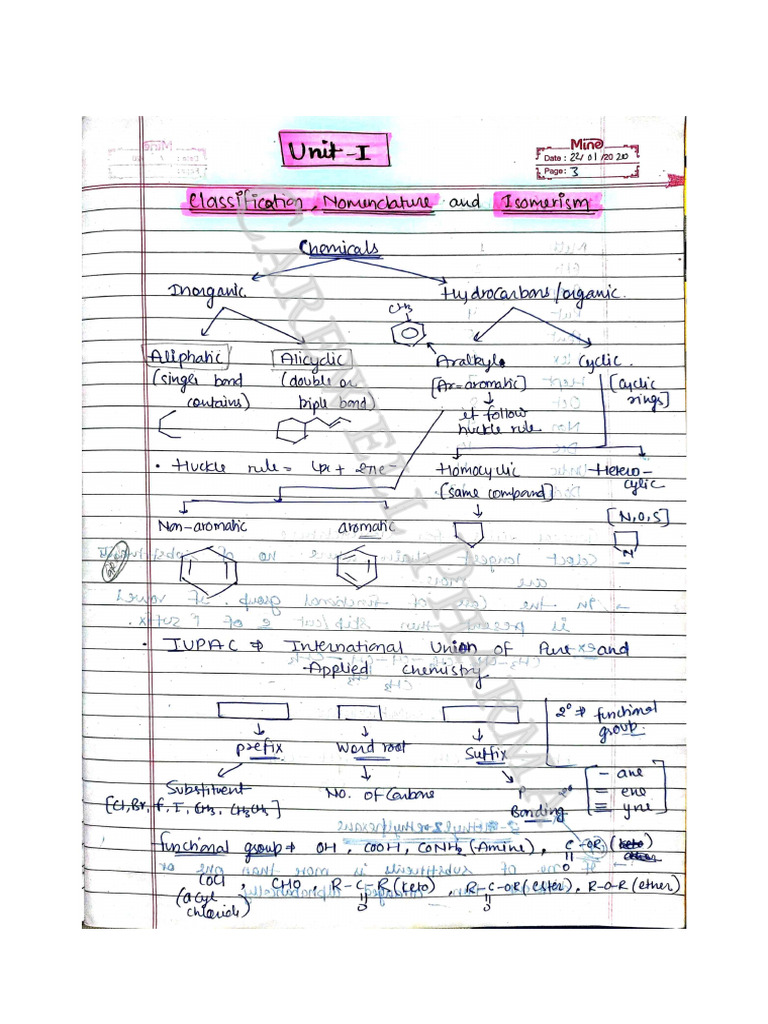 Unit-I
Mine
Date : 22/01/2020
Page: 3
Classification, Nomenclature and Isomerism
Chemicals
Inorganic
Hydrocarbons/organic.
CH3
Aliphatic
Alicyclic
Aralkyl
Cyclic
(single bond contains)
(double or triple bond)
[Ar=aromatic]
it follow huckle rule
[cyclic rings]
• Huckle rule = 4n + 2πe-
Homocyclic
[same compound]
Heterocylic
[N,O,S]
N
Non-aromatic
aromatic
• IUPAC ⇒ International Union of Pure and
Applied chemistry
2° ⇒ functional group.
prefix
Word root
Suffix
Substituent
[Cl, Br, F, I, CH3, CH2CH3]
No. of Carbons
P
Bonding
- ane
= ene
≡ yne
functional group → OH, COOH, CONH2 (Amine), C-OR
O
COCl, CHO, R-C-R (keto), R-C-OR (ester), R-O-R (ether)
(acyl chloride)
O
O
CAREWELL PHARMA